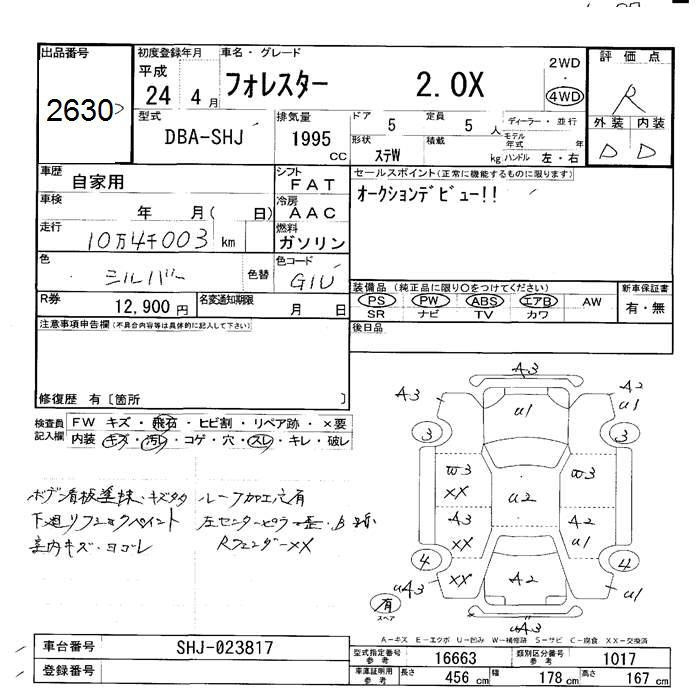 出品番号
2630
初度登録年月
平成
24 4 月
車名・グレード
フォレスター 2.0X
2WD
・
4WD
評価点
R
外装 内装
D D
型式
DBA-SHJ
排気量
1995
CC
ドア
5
定員
5 人
ディーラー・並行
形状
ステW
積載
kg
モデル年式
年
ハンドル 左・右
車歴
自家用
シフト
FAT
車検
年 月( 日)
冷房
AAC
走行
10万4千003 km
燃料
ガソリン
色
シルバー
色替
色コード
G1U
R券
12,900 円
名変通知期限
月 日
セールスポイント(正常に機能するものに限ります)
オークションデビュー!!
装備品(純正品に限り○をつけてください)
PS PW ABS エアB AW
SR ナビ TV カワ
新車保証書
有・無
後日品
注意事項申告欄(不具合内容等は具体的に記入して下さい)
修復歴 有〔箇所 〕
検査員
記入欄
FW キズ・飛石・ヒビ割・リペア跡・×要
内装 キズ・汚レ・コゲ・穴・スレ・キレ・破レ
ルーフ加工穴有
下廻リ
左センターピラー
室内キズ・ヨゴレ
RフェンダーXX
A3
A3
A2
U1
U1
3
3
W3
XX
W3
U2
A3
XX
A2
U1
4
4
XX
A2
UA3
U1
UA3
有
スペア
A-キズ E-エクボ U-凹み W-補修跡 S-サビ C-腐食 XX-交換済
車台番号
SHJ-023817
登録番号
型式指定番号
参考
16663
類別区分番号
参考
1017
車庫証明用
参考
長さ
456 cm
幅
178 cm
高さ
167 cm